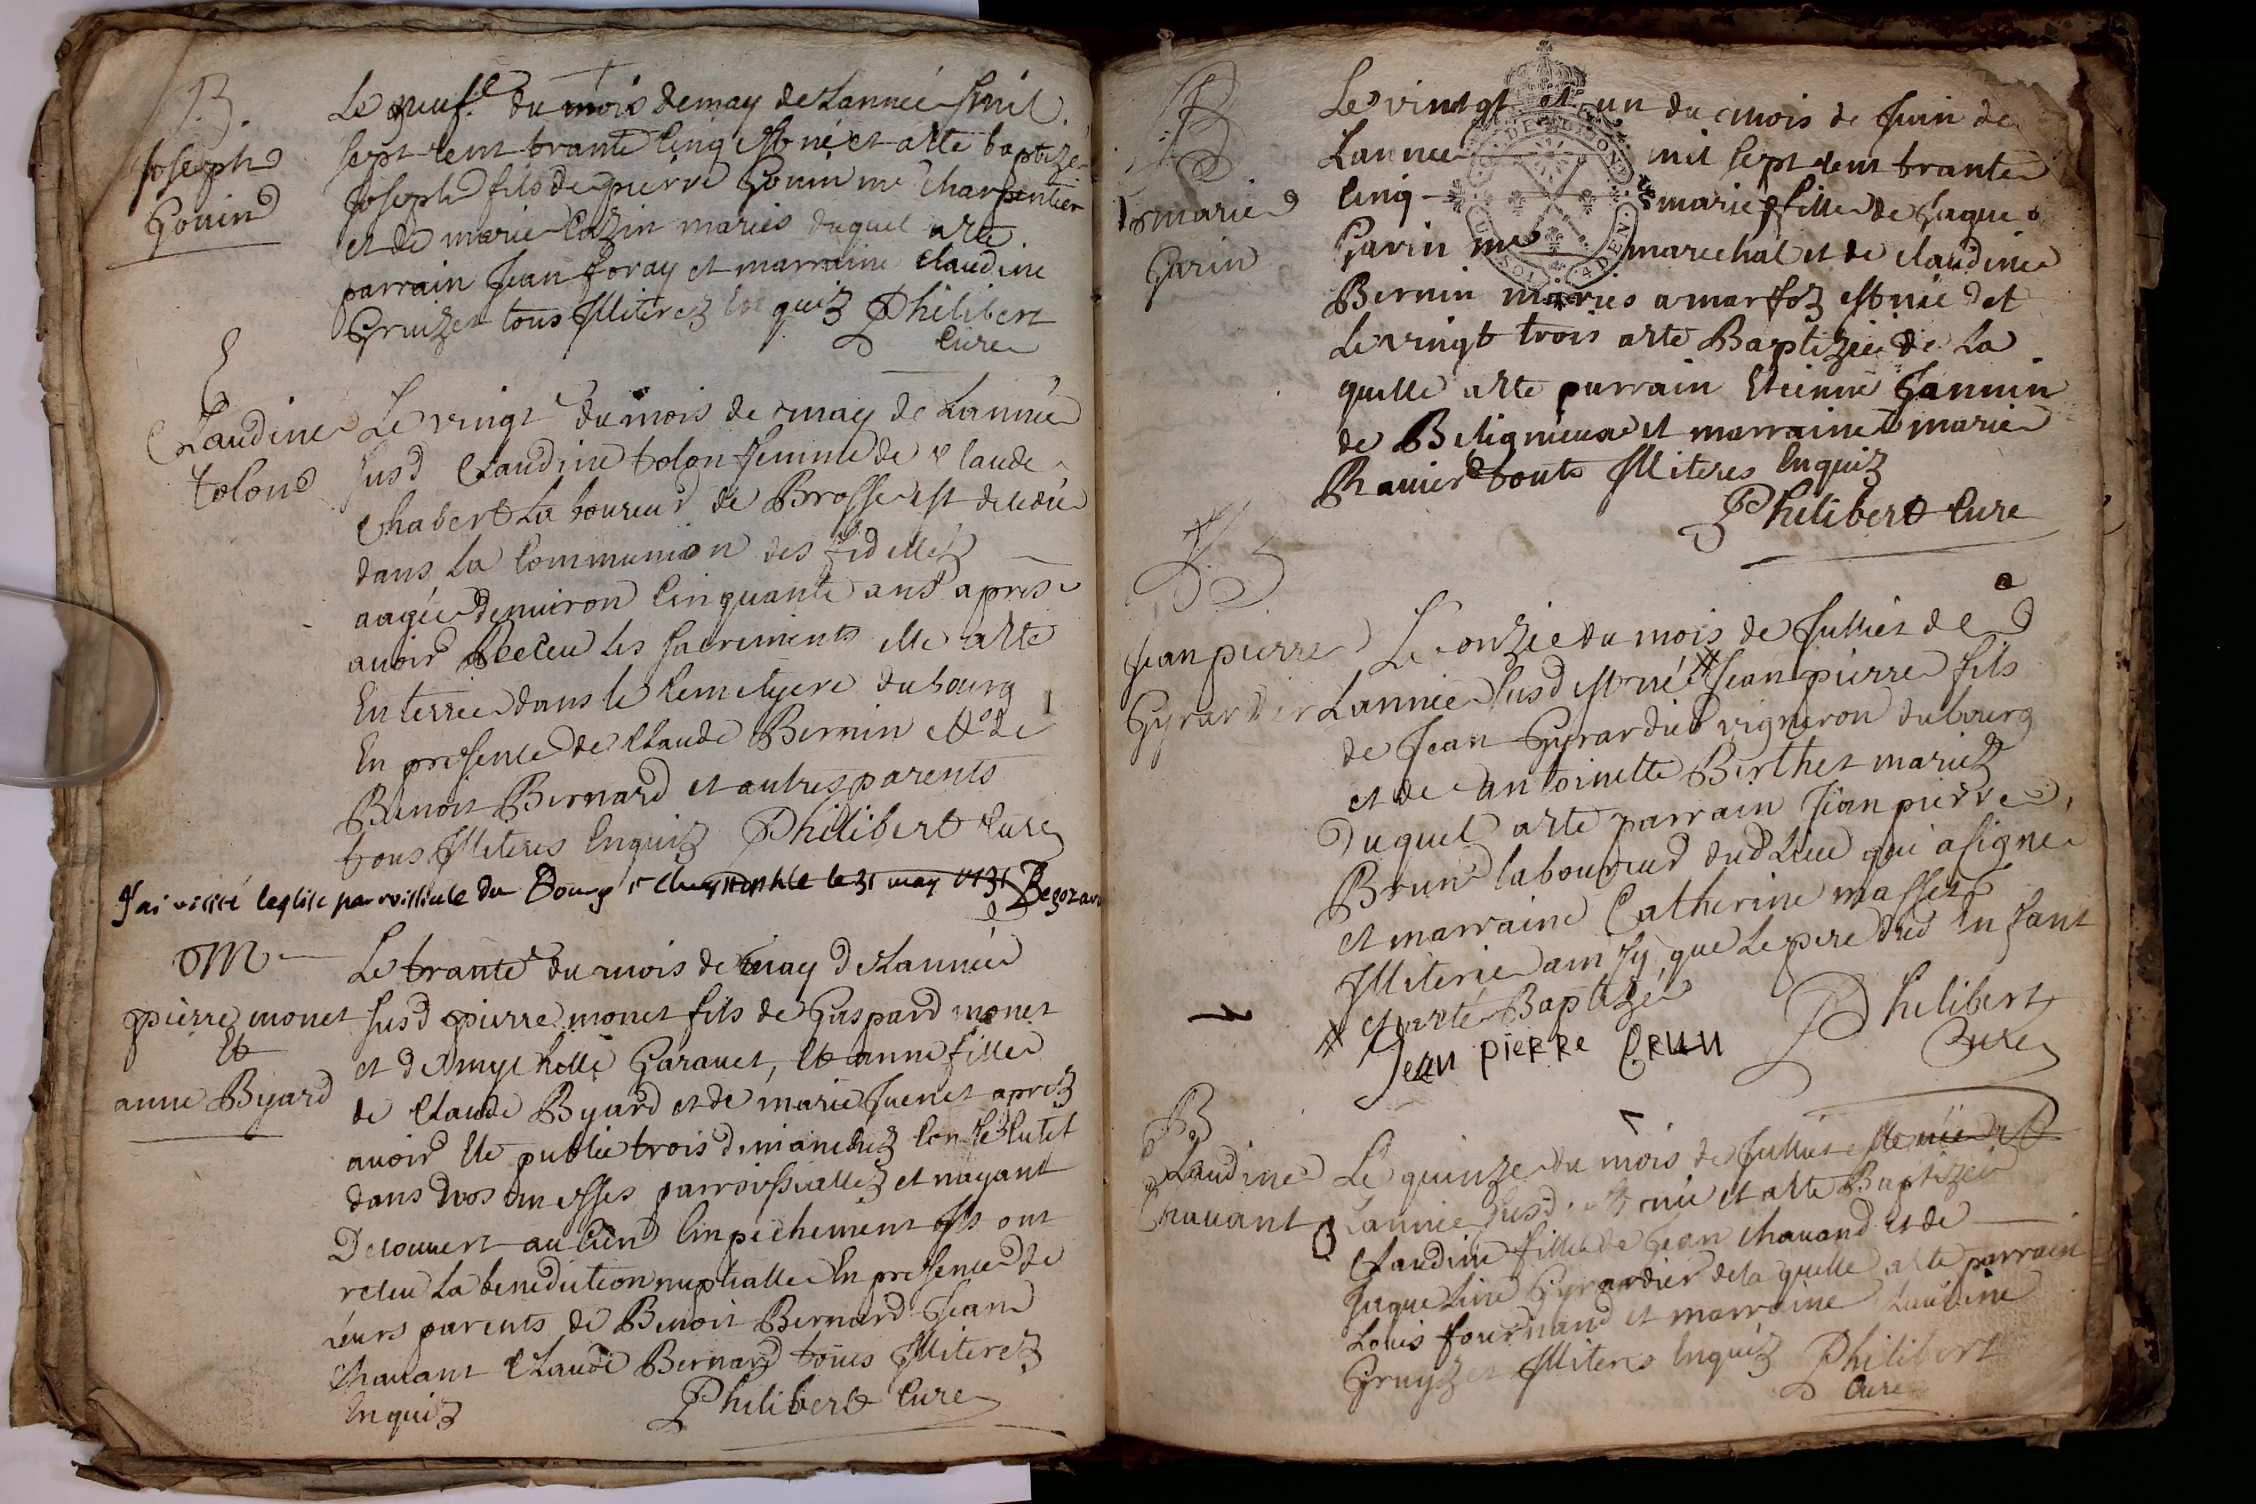 B.
Joseph
Gonin
Le neuf.e du mois de may de Lannée mil
sept cent trante cinq est né et a ete baptizé
Joseph fils de pierre Gonin me charpentier
et de marie Cozin mariés duquel a ete
parrain Jean foray et marraine Claudine
Gruizet tous Illiterez enquiz Philibert
Cure
Claudine
tolon
Le vingt du mois de may de Lannée
susd Claudine tolon femme de Claude
Chabert Laboureur de Brosse est decedée
dans La Communion des fidelles
aagée denuiron Cinquante ans apres
auoir Receu les sacrements elle a ete
Enterrée dans le Cemetyere du bourg
En presence de Claude Bernin et de
Benoit Bernard et autres parents
tous Illiteres Enquiz Philibert Cure
J'ai visité leglise parroissiale du Bourg le 31 may 1735
M
pierre monet
Et
anne Byard
Le trante du mois de may de Lannée
susd pierre monet fils de Gaspard monet
et de mychelle Garauet, Et anne fille
de Claude Byard et de marie Juenet aprez
auoir ete publié trois dimanchez Consecutif
dans nos messes parroissiallez et nayant
Decouuert aucun Empechement Ils ont
receu La benediction nuptialle En presence de
Leurs parents de Benoit Bernard Jean
Chauant Claude Bernard tous Illiterez
Enquiz Philibert Cure
B
marie
Garin
Le vintgt et un du mois de Juin de
Lannée mil sept cent trante
Cinq marie fille de Jaque
Garin me marechal et de claudine
Bernin mariés a marfoz est née et
Le vingt trois a ete Baptizée de La
quelle a ete parrain Etienne Jannin
de Beligneux et marraine marie
Ranier touts Illiteres Enquiz
Philibert Cure
B
Jean pierre
Gyrardier
Le onzie du mois de Julliet de
Lannée susd est né # Jean pierre fils
de Jean Gyrardier vigneron du bourg
et de antoinette Berthet mariez
Duquel a ete parrain Jean pierre
Brun laboureur dud Lieu qui a signé
et marraine Catherine masset
Illiterée ainsy que Le pere dud Enfant
# et a eté Baptizé
Jean pierre brun Philibert
Cure
B
Claudine
Chauant
Le quinze du mois de Julliet
Lannée susd est née et a ete Baptizée
Claudine fille de Jean Chauand et de
Jaqueline Gyrardier de la quelle a ete parrain
Louis fournand et marraine Claudine
Gruyzet Illiteres Enquiz Philibert
Cure